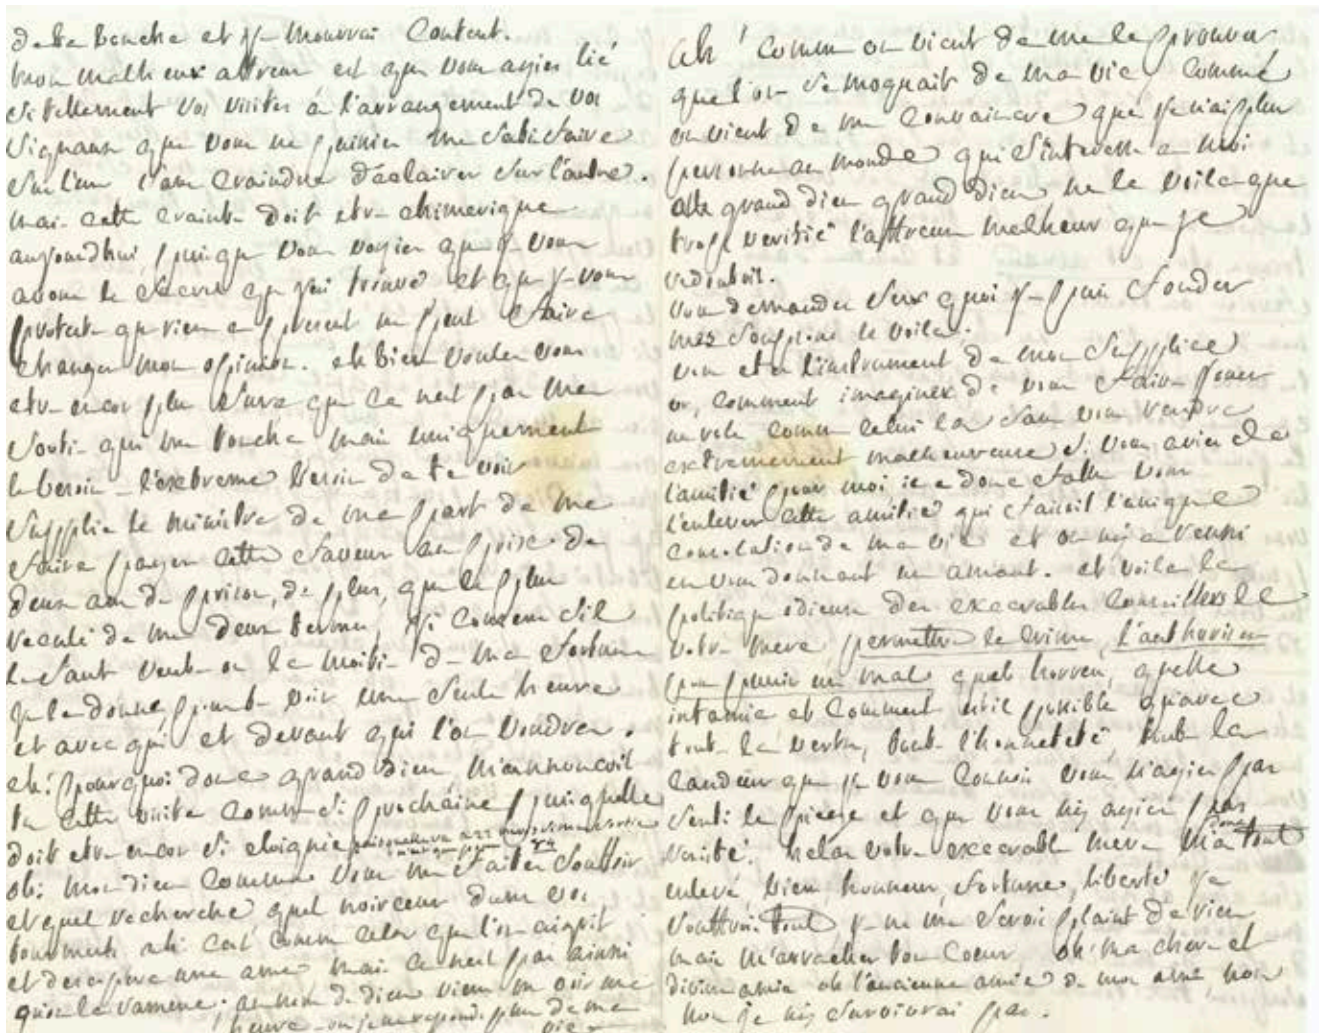 de ta bouche et je mourrai content.
mon malheur affreux est que vous ayiés lié
si tellement vos visites á l'arrangement de vos
signaux que vous ne puissiés me satisfaire
sur l'un sans craindre d'eclairer sur l'autre.
mais cette crainte doit etre chimerique
aujourdhui, puisque vous voyiés que je vous
avoue le secret que j'ai trouvé et que je vous
proteste que rien a present ne peut faire
changer mon opinion. eh bien voulez vous
etre encor plus sure que ce n'est pas ma
sortie qui me touche mais uniquement
le besoin l'extreme besoin de te voir
supplie le ministre de ma part de me
faire payer cette faveur au prix de
deux ans de prison, de plus, que le plus
reculé de mes deux termes, j'i consens s'il
le faut veut-on la moitié de ma fortune
je la donne, pour te voir une seule heure
et avec qui et devant qui l'on voudra.
eh! pourquoi donc grand dieu m'annoncois
tu cette visite comme si prochaine puisquelle
doit etre encor si eloignée
oh! mon dieu comme vous me faites souffrir
et quel recherche quel noirceur dans vos
tourments ah! cest comme cela que l'on aigrit
et desespere une ame mais ce nest pas ainsi
qu'on la ramene; au nom de dieu viens me voir une
heure ou je ne repond plus de ma
vie
ah! comme on vient de me le prouver
que l'on se moquait de ma vie, comme
on vient de me convaincre que je n'ais plus
personne au monde qui s'interesse a moi
ah grand dieu grand dieu ne le voila que
trop verifié l'affreux malheur que je
redoutois.
vous demandés sur quoi je puis fonder
mes soupcons le voila.
vous etes l'instrument de mon supplice
or, comment imaginer de vous faire jouer
un role comme celui la sans vous rendre
extremement malheureuse si vous aviés de
l'amitié pour moi il a donc fallu vous
l'enlever cette amitié qui faisoit l'unique
consolation de ma vie et on n'i a reussi
en vous donnant un amant. et voila la
politique odieuse des execrables conseillers de
votre mere permettre le crime, l'authoriser
pour punir un mal quel horreur, quelle
infamie et comment est il possible qu'avec
toute la vertu, toute l'honneteté, toute la
candeur que je vous connois vous n'ayiés pas
senti le piege et que vous n'i ayiés pas
resisté. helas votre execrable mere m'a donc tout
enlevé, bien, honneur, fortune, liberté je
souffrois tout je ne me serois plaint de rien
mais m'arracher ton coeur oh! ma chere et
divine amie oh l'ancienne amie de mon ame, non
non je n'i survivrai pas.